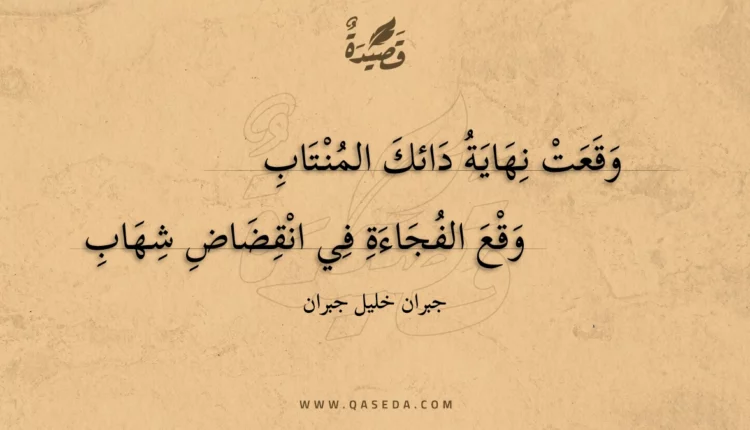 قَصِيْدَةٌ
وَقَعَتْ نِهَايَةُ دَائكَ المُنْتَابِ
وَقْعَ الفُجَاءَةِ فِي انْقِضَاضِ شِهَابِ
جبران خليل جبران
WWW.QASEDA.COM